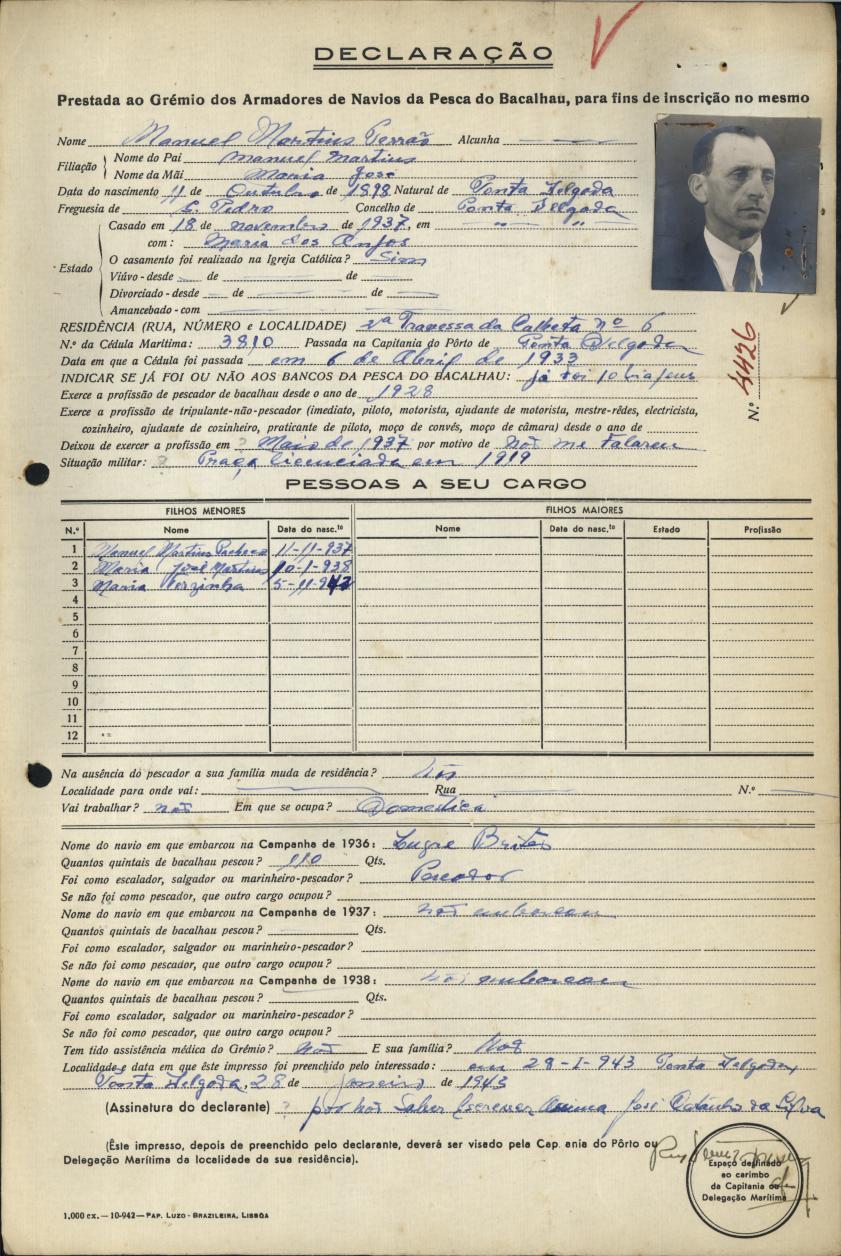 DECLARAÇÃO
Prestada ao Grémio dos Armadores de Navios da Pesca do Bacalhau, para fins de inscrição no mesmo
Nome Manuel Martins Ferrão Alcunha
Filiação Nome do Pai Manuel Martins
Nome da Mãi Maria José
Data do nascimento 11 de Outubro de 1898 Natural de Ponta Delgada
Freguesia de S. Pedro Concelho de Ponta Delgada
Casado em 18 de novembro de 1937, em " "
com: Maria dos Anjos
Estado O casamento foi realizado na Igreja Católica? Sim
Viúvo - desde de de
Divorciado - desde de de
Amancebado - com
RESIDÊNCIA (RUA, NÚMERO e LOCALIDADE) 2ª Travessa da Calheta nº 6
N.º da Cédula Marítima: 3810 Passada na Capitania do Pôrto de Ponta Delgada
Data em que a Cédula foi passada em 6 de Abril de 1933
INDICAR SE JÁ FOI OU NÃO AOS BANCOS DA PESCA DO BACALHAU: já foi 10 viajens
Exerce a profissão de pescador de bacalhau desde o ano de 1928
Exerce a profissão de tripulante-não-pescador (imediato, piloto, motorista, ajudante de motorista, mestre-rêdes, electricista,
cozinheiro, ajudante de cozinheiro, praticante de piloto, moço de convés, moço de câmara) desde o ano de
Deixou de exercer a profissão em ? Maio de 1937 por motivo de não me falarem
Situação militar: ? Praça licenciada em 1919
N.º 4426
PESSOAS A SEU CARGO
FILHOS MENORES FILHOS MAIORES
N.º Nome Data do nasc.to Nome Data do nasc.to Estado Profissão
1 Manuel Martins Pacheco 11-11-937
2 Maria José Martins 10-1-938
3 Maria Terzinha 5-11-942
4
5
6
7
8
9
10
11
12
Na ausência do pescador a sua família muda de residência? não
Localidade para onde vai: Rua N.º
Vai trabalhar? não Em que se ocupa? Domestica
Nome do navio em que embarcou na Campanha de 1936: Lugre Brites
Quantos quintais de bacalhau pescou? 110 Qts.
Foi como escalador, salgador ou marinheiro-pescador? Pescador
Se não foi como pescador, que outro cargo ocupou?
Nome do navio em que embarcou na Campanha de 1937: não embarcou
Quantos quintais de bacalhau pescou? Qts.
Foi como escalador, salgador ou marinheiro-pescador?
Se não foi como pescador, que outro cargo ocupou?
Nome do navio em que embarcou na Campanha de 1938: não embarcou
Quantos quintais de bacalhau pescou? Qts.
Foi como escalador, salgador ou marinheiro-pescador?
Se não foi como pescador, que outro cargo ocupou?
Tem tido assistência médica do Grémio? Não E sua família? Não
Localidade e data em que êste impresso foi preenchido pelo interessado: em 28-1-943 Ponta Delgada,
Ponta Delgada, 28 de janeiro de 1943
(Assinatura do declarante) ? por não Saber Escrever Assina José da Silva
(Êste impresso, depois de preenchido pelo declarante, deverá ser visado pela Cap. ania do Pôrto ou
Delegação Marítima da localidade da sua residência).
Espaço destinado
ao carimbo
da Capitania ou
Delegação Marítima
1.000 ex. — 10-942 — PAP. LUZO - BRAZILEIRA, LISBÔA